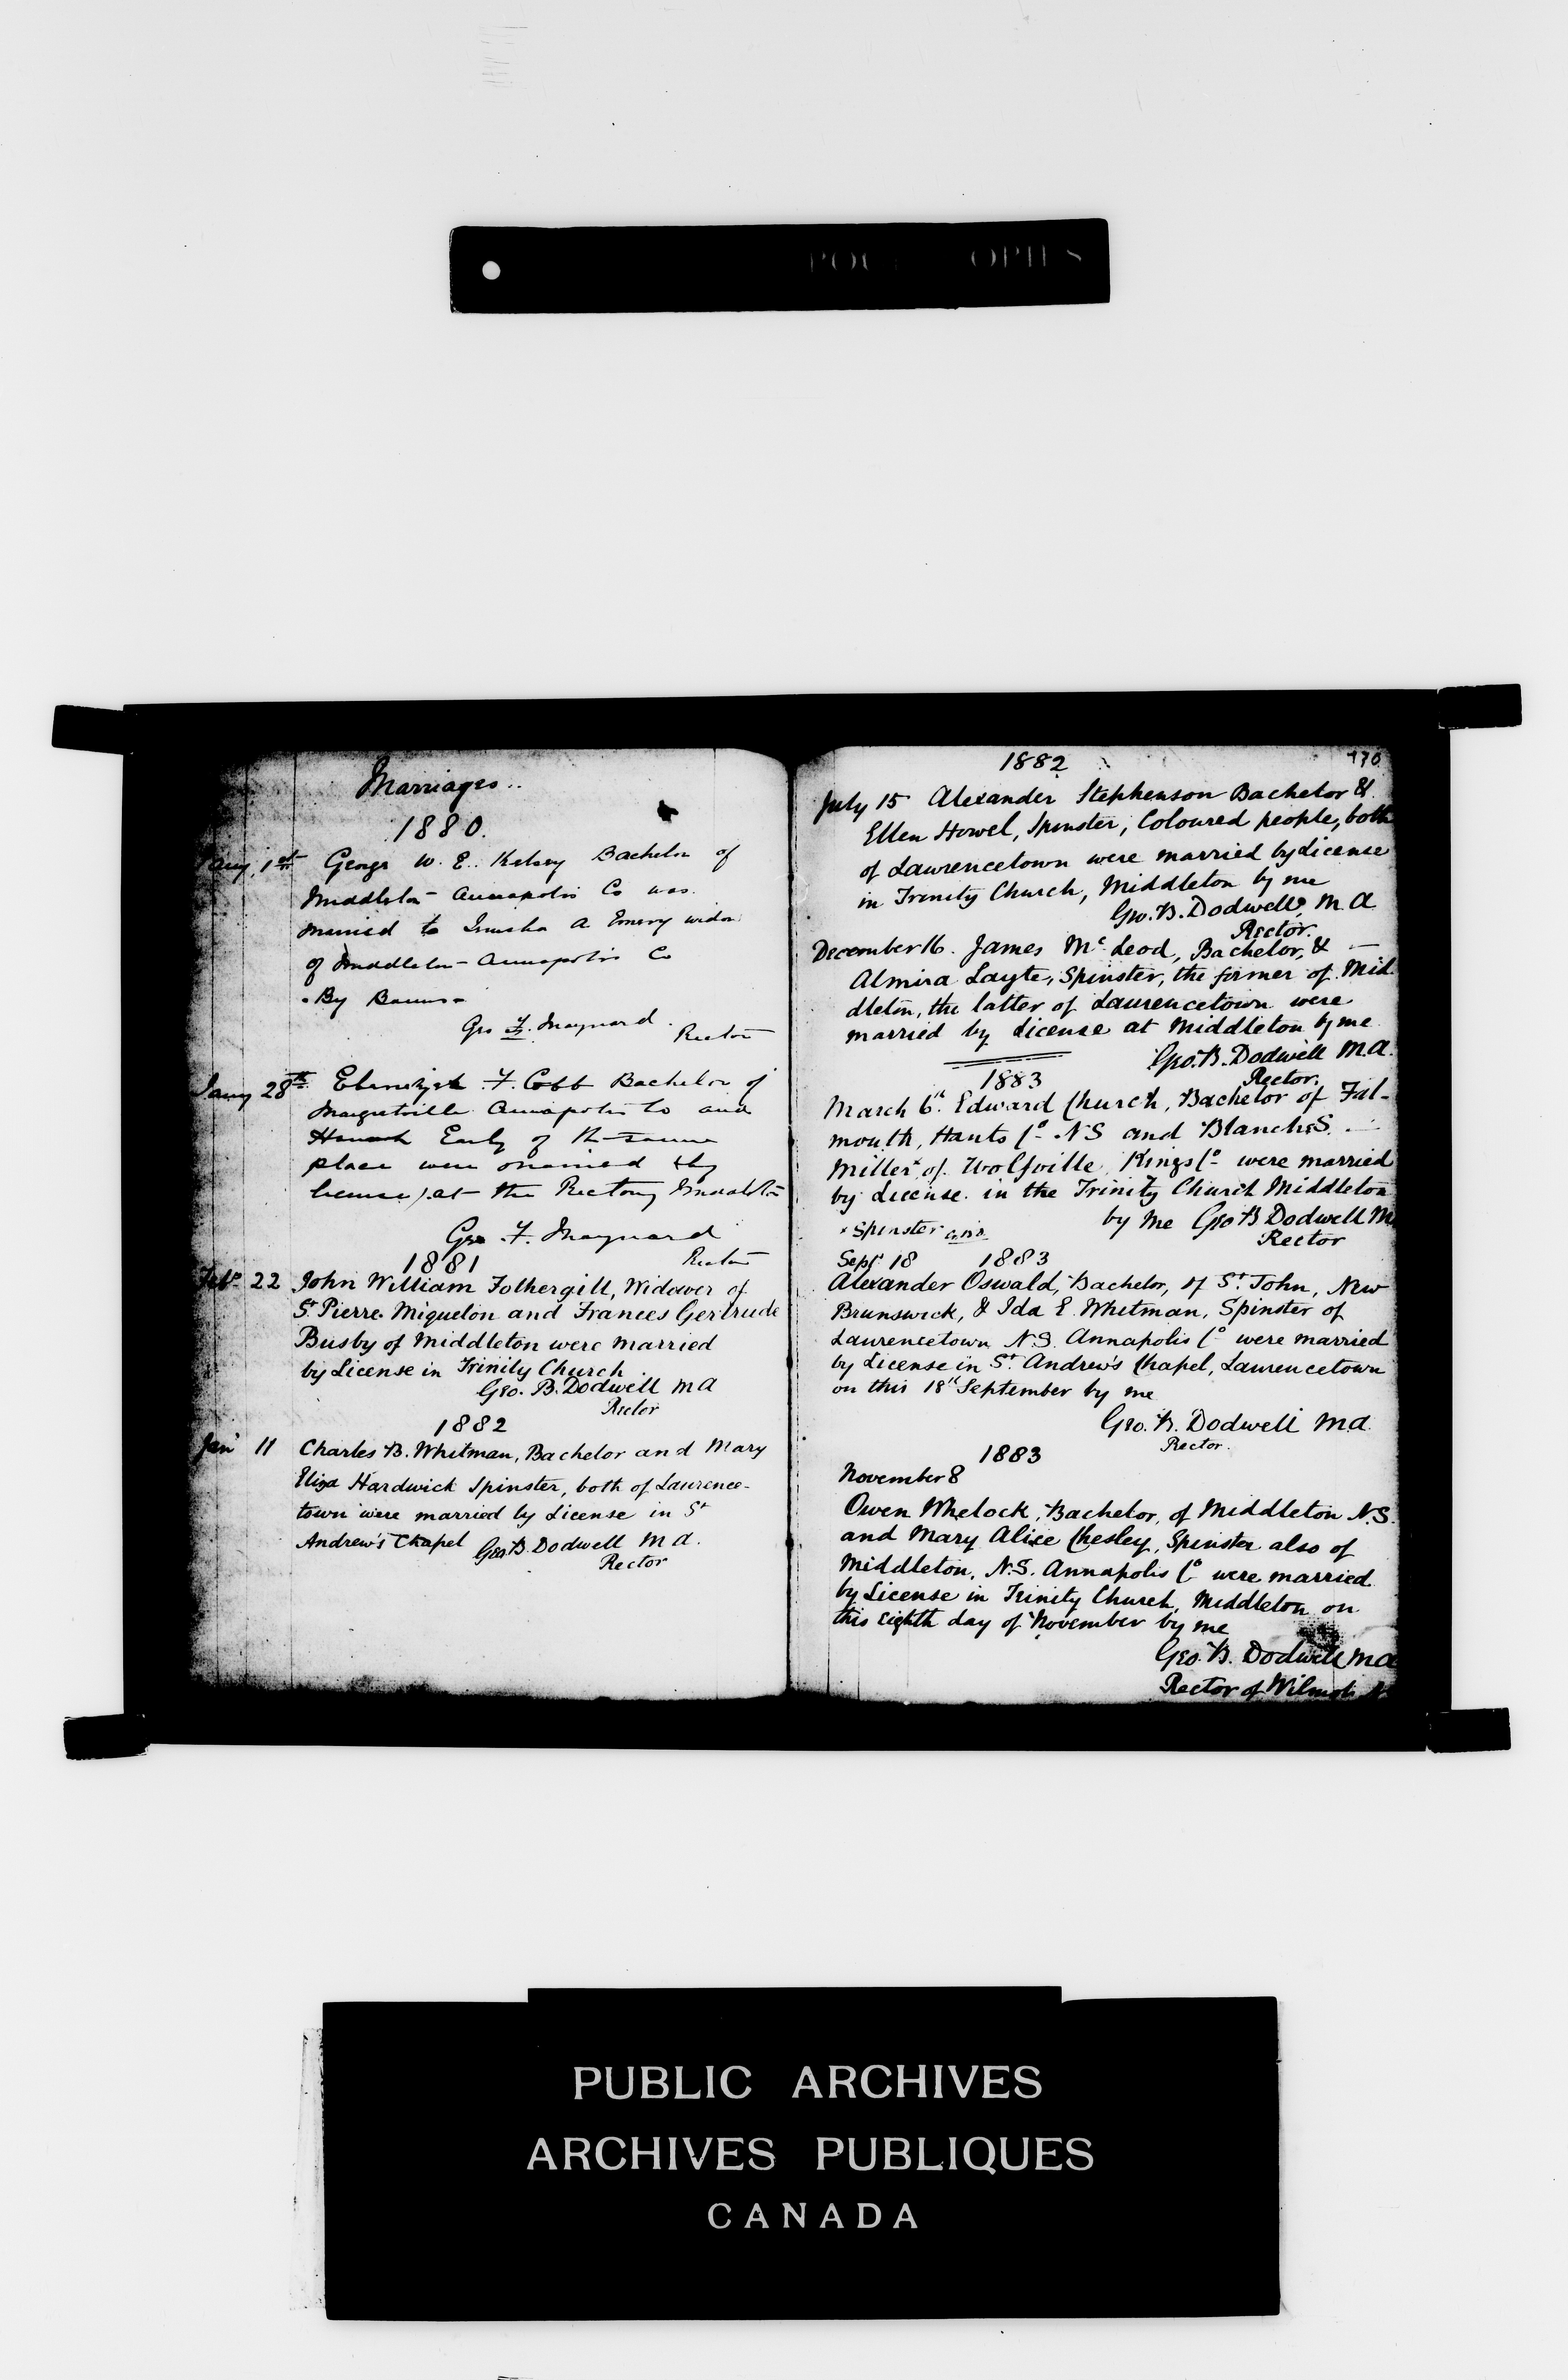 Marriages
1880.
Jany 1st George W. E. Kelsey Bachelor of
Middleton Annapolis Co was
married to A Emery widow
of Middleton Annapolis Co
By Banns
Geo F. Maynard
Rector
Jany 28th F. Cobb Bachelor of
Annapolis Co and
Hannah Early of the same
place were married (by
license) at the Rectory Middleton
Geo F. Maynard
Rector
1881
Feby 22 John William Fothergill, Widower of
St Pierre. Miquelon and Frances Gertrude
Busby of Middleton were married
by License in Trinity Church
Geo. B. Dodwell M A
Rector
1882
Jany 11 Charles B. Whitman, Bachelor and Mary
Eliza Hardwick Spinster, both of Laurence-
town were married by License in St
Andrew's Chapel Geo B. Dodwell M A.
Rector
1882
July 15 Alexander Stephenson Bachelor &
Ellen Howel, Spinster, Coloured people, both
of Lawrencetown were married by License
in Trinity Church, Middleton by me
Geo. B. Dodwell, M. A
Rector.
December 16. James Mc Leod, Bachelor, &
Almira Layte, Spinster, the former of Mid
dleton, the latter of Laurencetown were
married by License at Middleton by me
Geo. B. Dodwell M.A.
Rector.
1883
March 6th Edward Church, Bachelor of Fal-
mouth, Hants Co N S and Blanch S.
Miller x of Wolfville Kings Co were married
by License in the Trinity Church Middleton
by me Geo B Dodwell M
Rector
x Spinster
Sept 18 1883
Alexander Oswald, Bachelor, of St John, New
Brunswick, & Ida E Whitman, Spinster of
Laurencetown N.S. Annapolis Co were married
by License in St Andrew's Chapel, Laurencetown
on this 18th September by me
Geo. B. Dodwell M.A.
Rector.
1883
November 8
Owen Whelock, Bachelor, of Middleton N.S.
and Mary Alice Chesley, Spinster also of
Middleton, N.S. Annapolis Co were married
by License in Trinity Church, Middleton on
this eighth day of November by me
Geo. B. Dodwell M A
Rector of Wilmot
PUBLIC ARCHIVES
ARCHIVES PUBLIQUES
CANADA